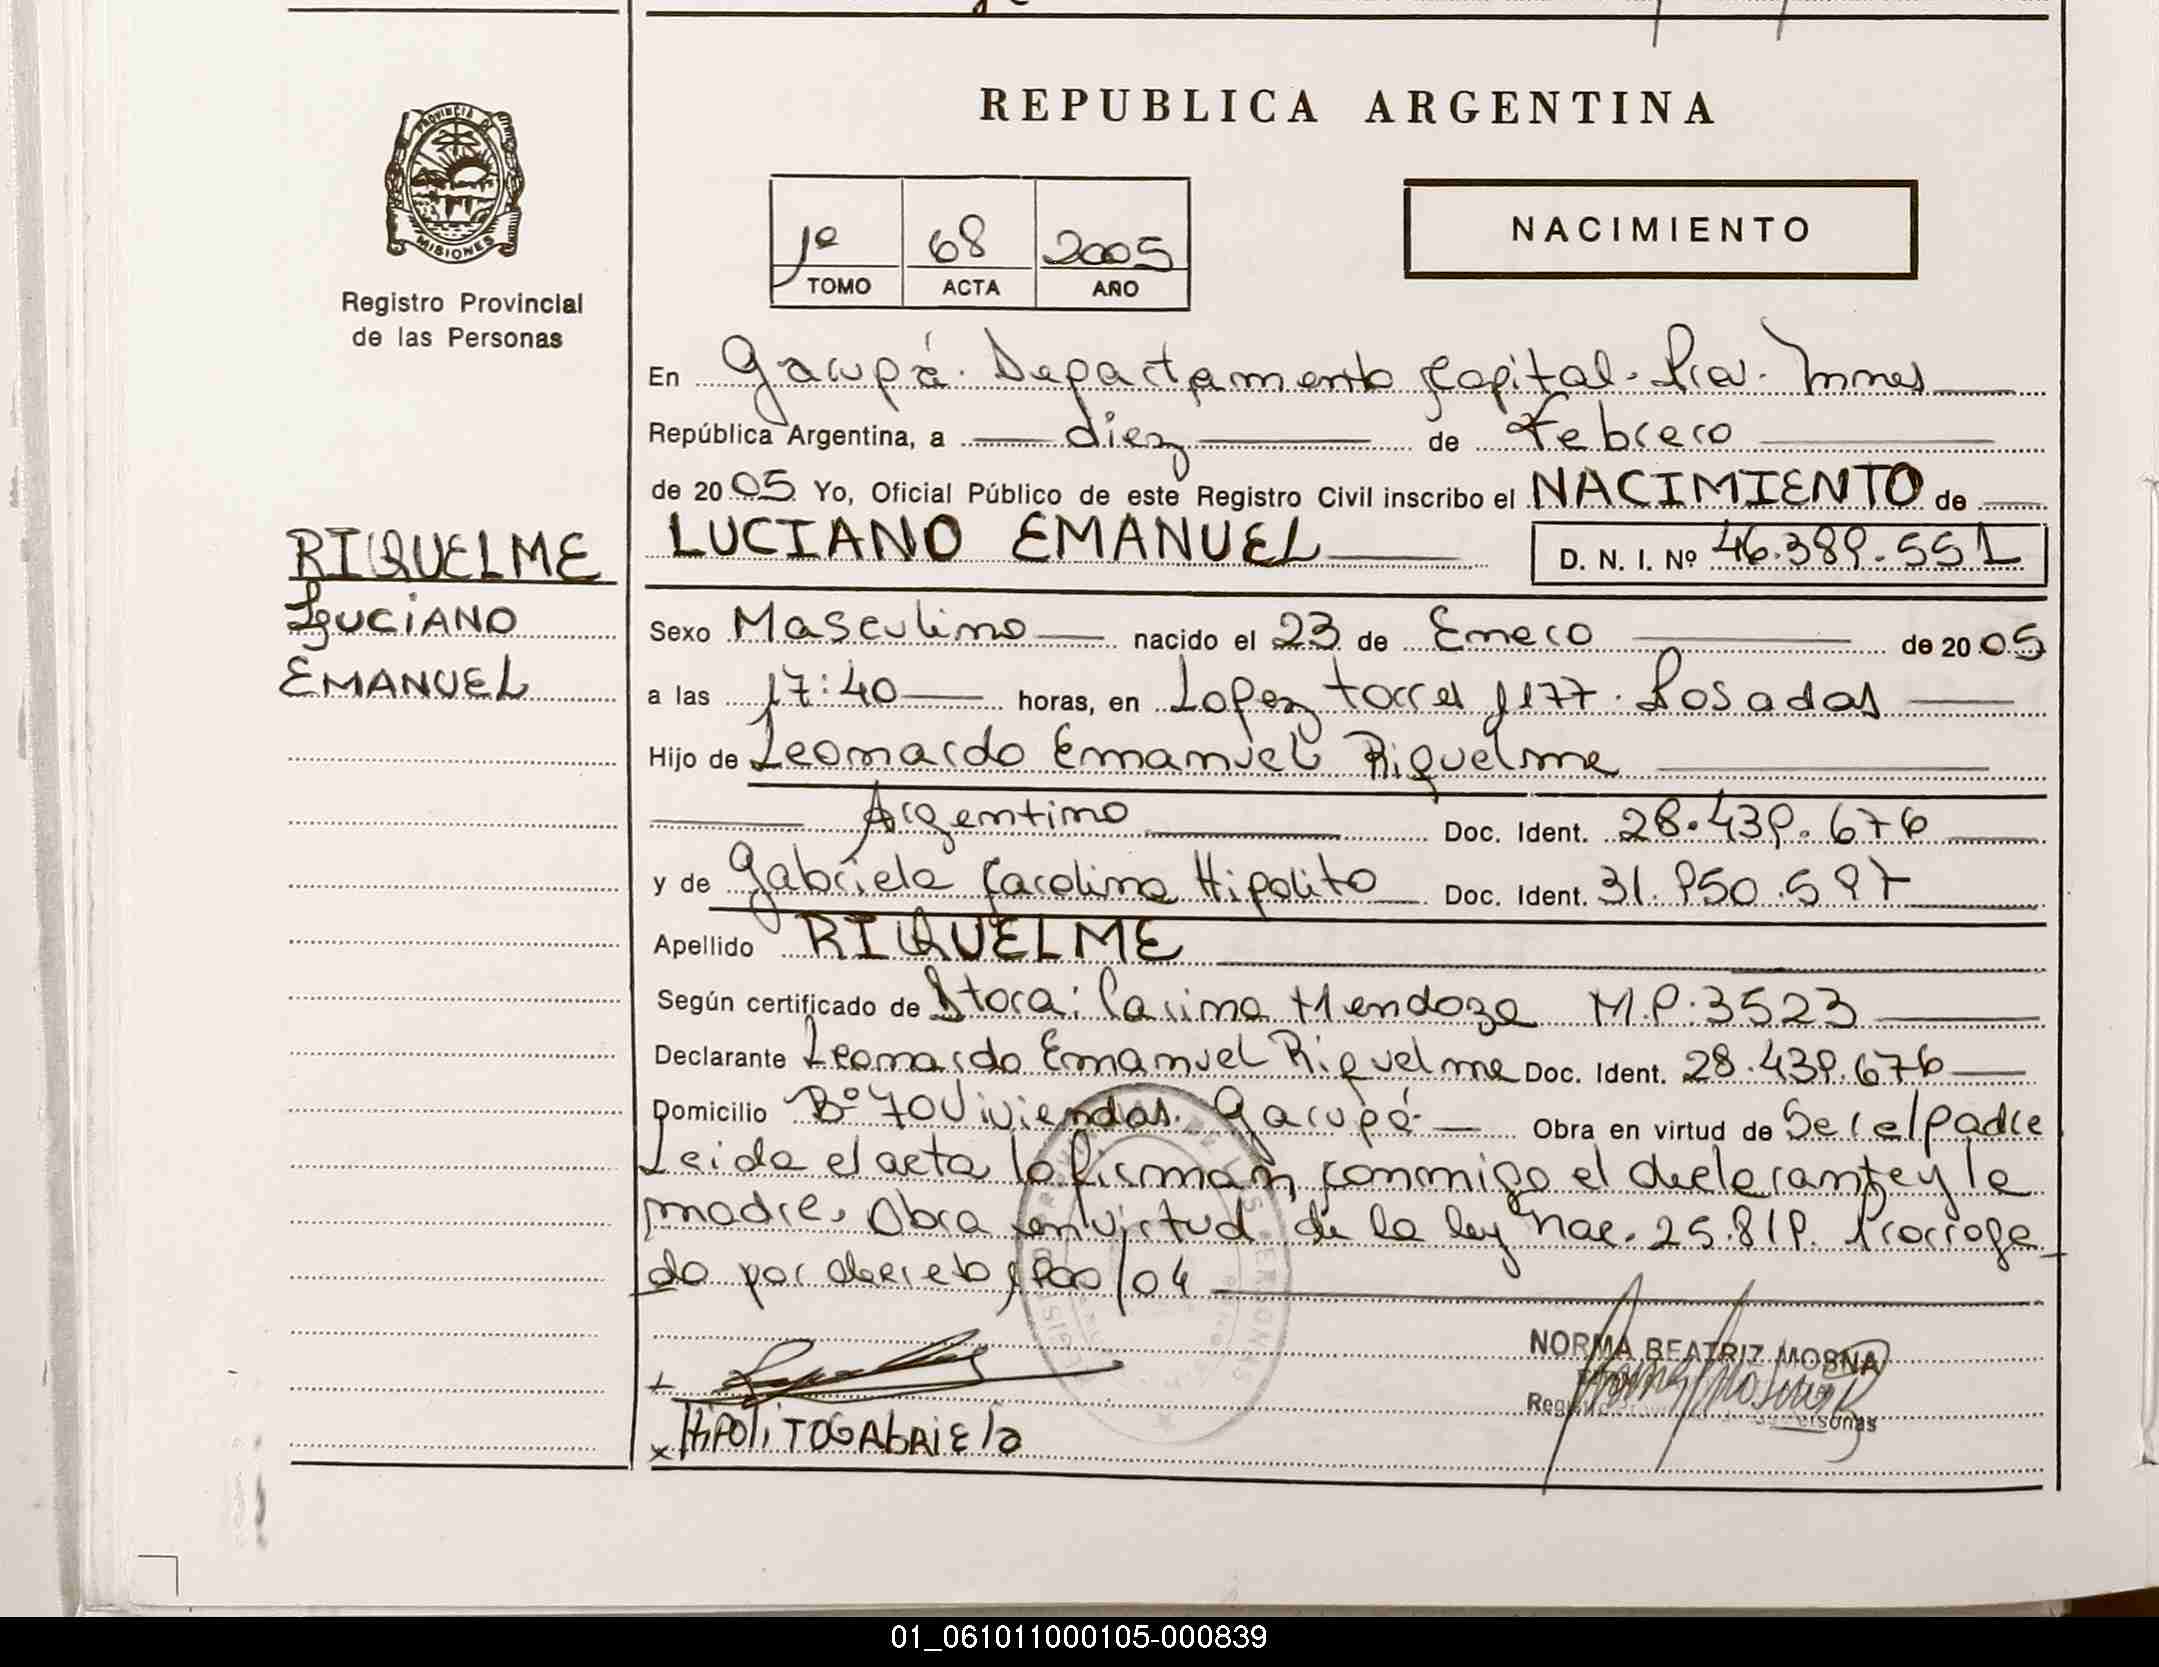 REPUBLICA ARGENTINA
PROVINCIA DE
MISIONES
Registro Provincial
de las Personas
1º 68 2005
TOMO ACTA AÑO
NACIMIENTO
En Garupá. Departamento Capital. Prov. Mnes
República Argentina, a diez de Febrero
de 2005 Yo, Oficial Público de este Registro Civil inscribo el NACIMIENTO de
RIQUELME
LUCIANO
EMANUEL
LUCIANO EMANUEL D. N. I. Nº 46.389.551
Sexo Masculino nacido el 23 de Enero de 2005
a las 17:40 horas, en Lopez torres 1177. Posadas
Hijo de Leonardo Emanuel Riquelme
Argentino Doc. Ident. 28.439.676
y de Gabriela Carolina Hipolito Doc. Ident. 31.950.597
Apellido RIQUELME
Según certificado de Dtora: Carina Mendoza M.P. 3523
Declarante Leonardo Emanuel Riquelme Doc. Ident. 28.439.676
Domicilio Bº 70 Viviendas. Garupá. Obra en virtud de Ser el padre
Leida el acta la firman conmigo el declarante y la
madre. Obra en virtud de la ley Nac. 25.819. Prorroga
do por decreto /04
x HipoliTO GAbriEla
NORMA BEATRIZ MOSNA
Registro Provincial de las Personas
01_061011000105-000839